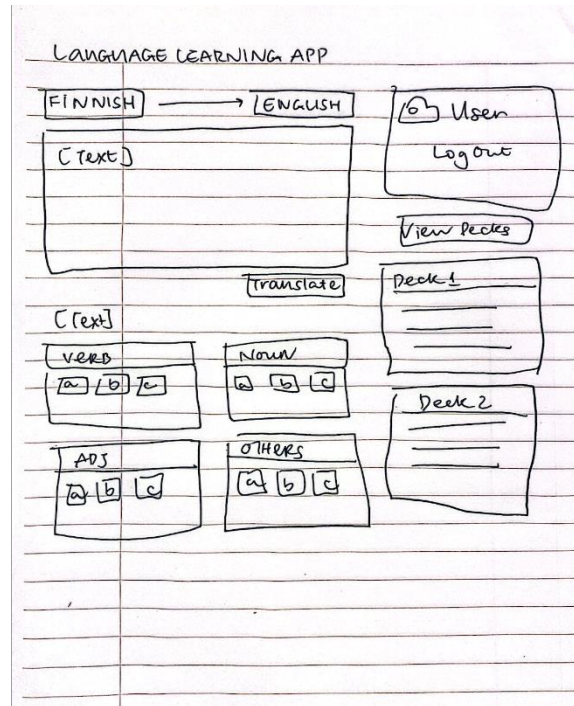 LANGUAGE LEARNING APP
FINNISH → ENGLISH
[Text]
Translate
[Text]
VERB
a b c
NOUN
a b c
ADJ
a b c
OTHERS
a b c
User
Log out
View Decks
Deck 1
Deck 2